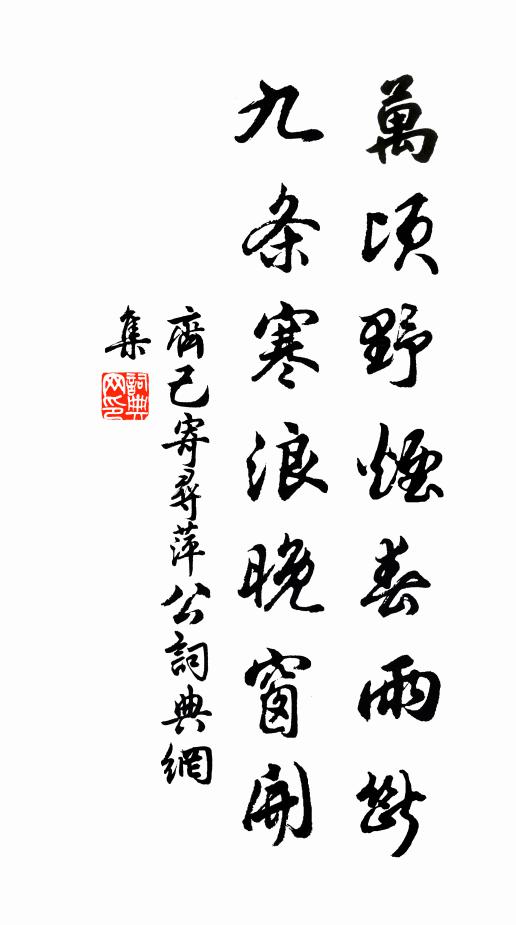 萬頃野煙春雨斷
九条寒浪晚窗開
齊己寄尋萍公詞典網
集
詞典
网印